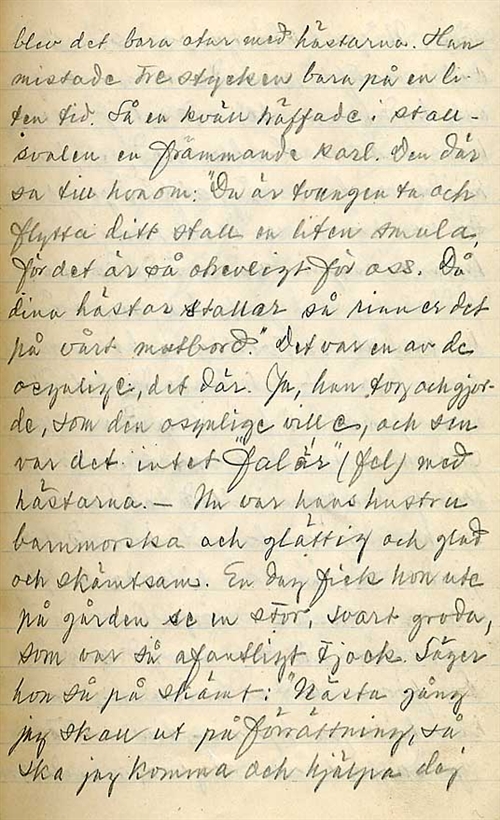 blev det bara otur med hästarna. Han
mistade tre stycken bara på en li-
ten tid. Så en kväll träffade i stall-
svalen en främmande karl. Den där
sa till honom: "Du är tvungen ta och
flytta ditt stall en liten smula,
för det är så otrevligt för oss. Då
dina hästar stallar så rinner det
på vårt matbord." Det var en av de
osynlige, det där. Ja, han tog och gjor-
de, som den osynlige ville, och sen
var det intet "falär" (fel) med
hästarna. — Nu var hans hustru
barnmorska och glättig och glad
och skämtsam. En dag fick hon ute
på gården se en stor, svart groda,
som var så afantligt tjock. Säger
hon så på skämt: "Nästa gång
jag skall ut på förrättning, så
ska jag komma och hjälpa dej